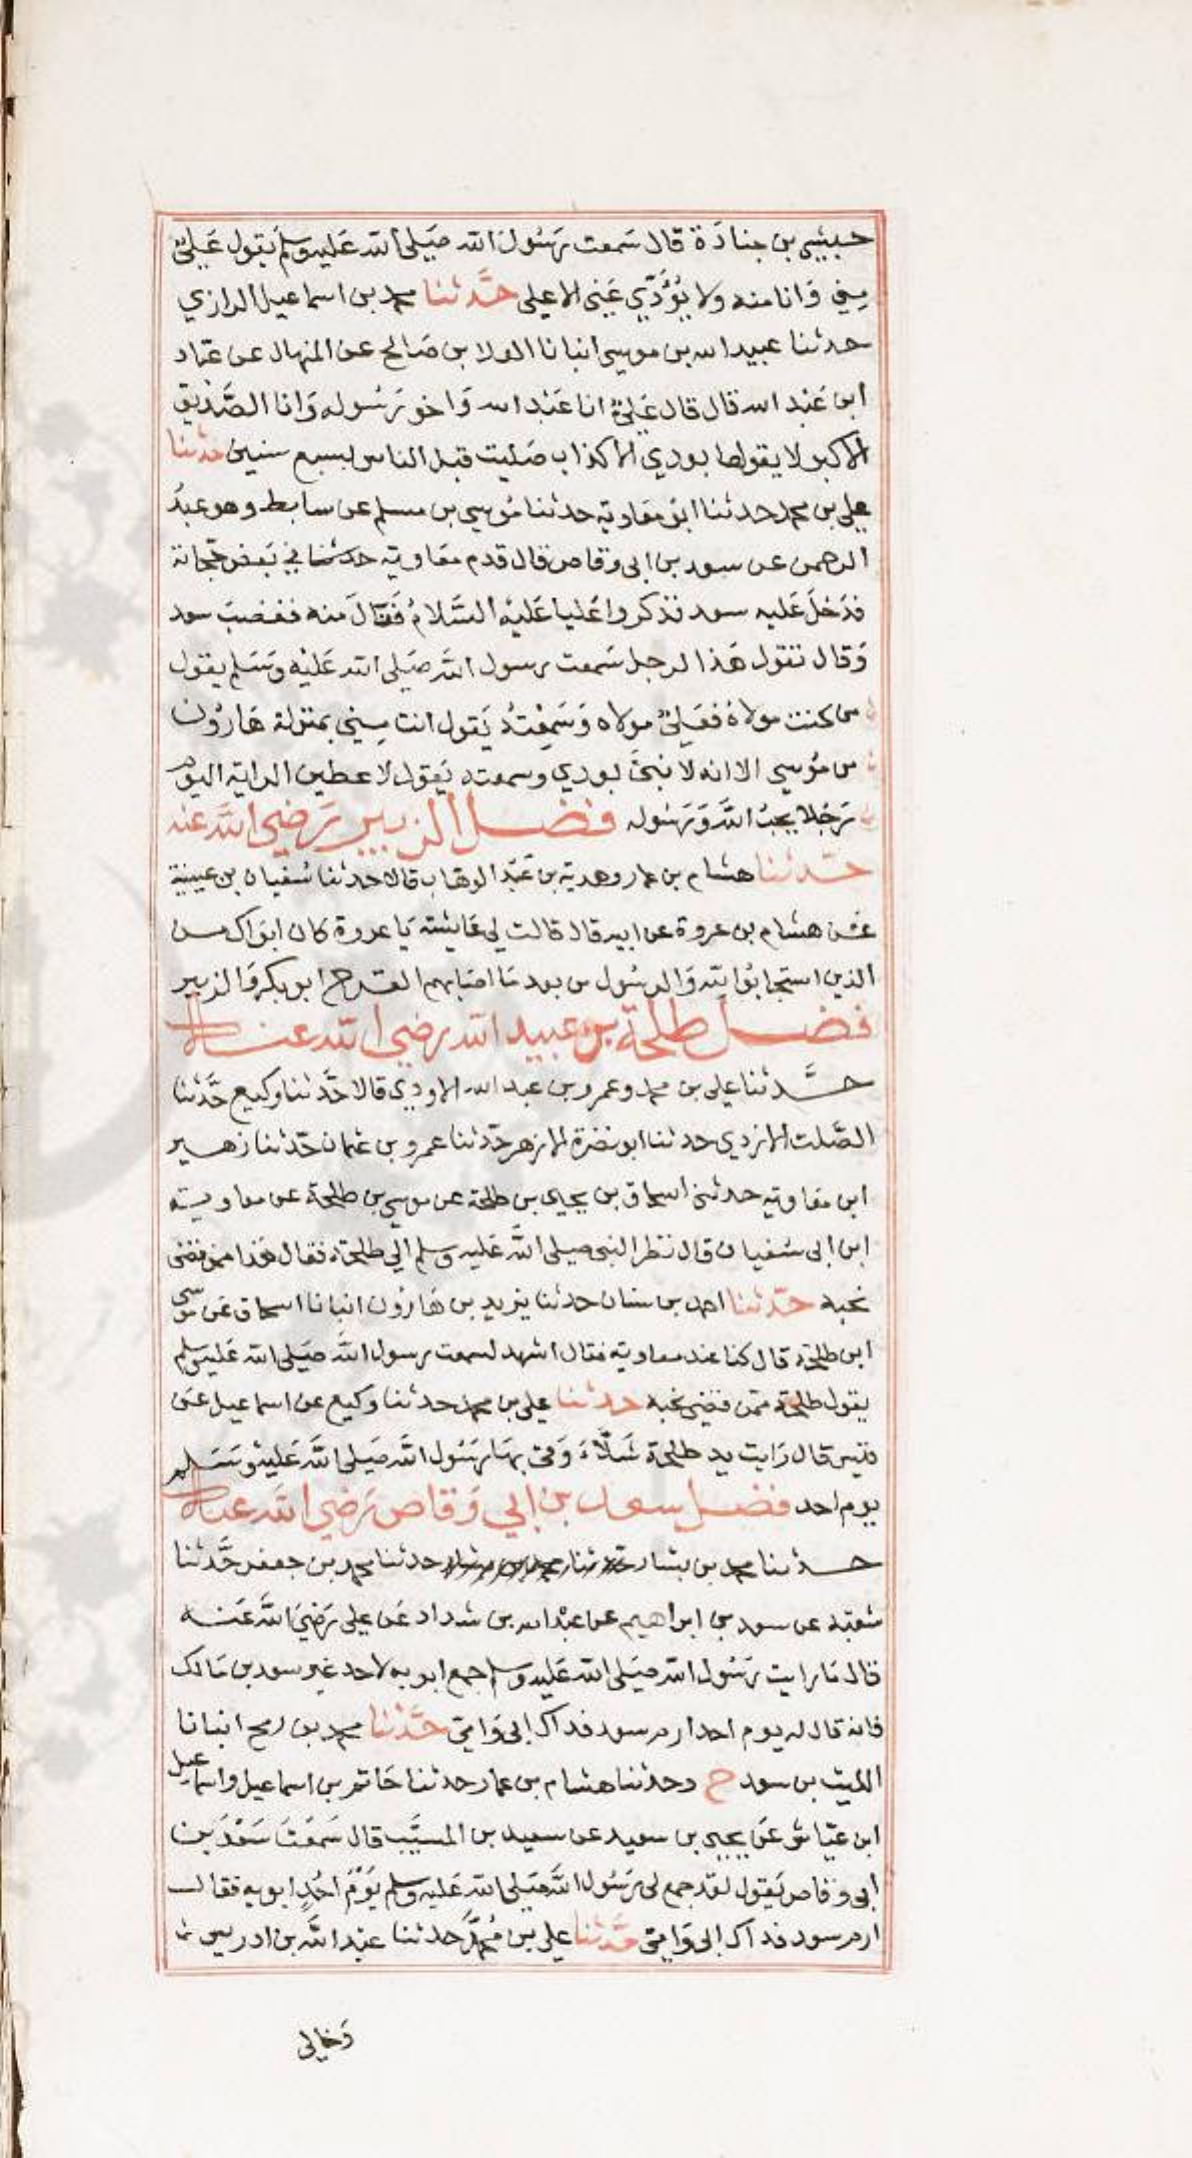 حبشي بن جنادة قال سمعت رسول الله صلى الله عليه وسلم يقول علي
مني وانا منه ولا يؤدي عني الا علي حدثنا محمد بن اسماعيل الرازي
حدثنا عبيد الله بن موسى انبانا العلا بن صالح عن المنهال عن عباد
ابن عبد الله قال قال علي انا عبد الله واخو رسوله وانا الصديق
الاكبر لا يقولها بعدي الا كذاب صليت قبل الناس لسبع سنين حدثنا
علي بن محمد حدثنا ابو معاوية حدثنا موسى بن مسلم عن سابط وهو عبد
الرحمن عن سعد بن ابي وقاص قال قدم معاوية في بعض حجاته
فدخل عليه سعد فذكروا عليا عليه السلام فنال منه فغضب سعد
وقال تقول هذا لرجل سمعت رسول الله صلى الله عليه وسلم يقول
من كنت مولاه فعلي مولاه وسمعته يقول انت مني بمنزلة هارون
من موسى الا انه لا نبي بعدي وسمعته يقول لاعطين الراية اليوم
رجلا يحب الله ورسوله فضل الزبير رضي الله عنه
حدثنا هشام بن عمار وهدية بن عبد الوهاب قالا حدثنا سفيان بن عيينة
عن هشام بن عروة عن ابيه قال قالت لي عايشة يا عروة كان ابواك من
الذين استجابوا لله والرسول من بعد ما اصابهم القرح ابو بكر والزبير
فضل طلحة بن عبيد الله رضي الله عنه
حدثنا علي بن محمد وعمرو بن عبد الله الاودي قالا حدثنا وكيع حدثنا
الصلت الازدي حدثنا ابو نضرة الازهر حدثنا عمرو بن عثمان حدثنا زهير
ابن معاوية حدثني اسحاق بن يحيى بن طلحة عن موسى بن طلحة عن معاوية
ابن ابي سفيان قال نظر النبي صلى الله عليه وسلم الي طلحة فقال هذا ممن قضى
نحبه حدثنا احمد بن سنان حدثنا يزيد بن هارون انبانا اسحاق عن موسى
ابن طلحة قال كنا عند معاوية فقال اشهد لسمعت رسول الله صلى الله عليه وسلم
يقول طلحة ممن قضى نحبه حدثنا علي بن محمد حدثنا وكيع عن اسماعيل عن
قيس قال رايت يد طلحة شلاء وقى بها رسول الله صلى الله عليه وسلم
يوم احد فضل سعد بن ابي وقاص رضي الله عنه
حدثنا محمد بن بشار حدثنا محمد بن جعفر حدثنا
شعبة عن سعد بن ابراهيم عن عبد الله بن شداد عن علي رضي الله عنه
قال ما رايت رسول الله صلى الله عليه وسلم جمع ابويه لاحد غير سعد بن مالك
فانه قال له يوم احد ارم سعد فداك ابي وامي حدثنا محمد بن رمح انبانا
الليث بن سعد ح وحدثنا هشام بن عمار حدثنا حاتم بن اسماعيل واسماعيل
ابن عياش عن يحيى بن سعيد عن سعيد بن المسيب قال سمعت سعد بن
ابي وقاص يقول لقد جمع لي رسول الله صلى الله عليه وسلم يوم احد ابويه فقال
ارم سعد فداك ابي وامي حدثنا علي بن محمد حدثنا عبد الله بن ادريس
وخالي